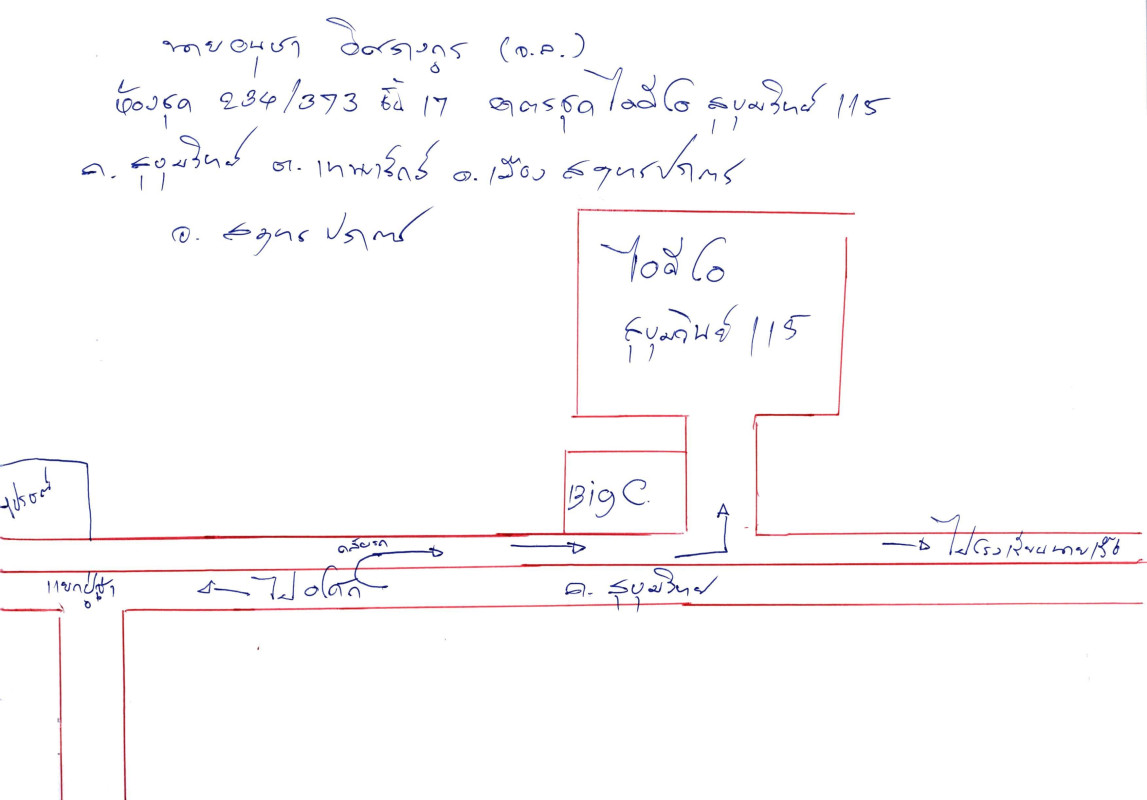 นายอนุชา อิศรางกูร (อ.ล.)
ห้องชุด 234/373 ชั้น 17 อาคารชุด ไอดีโอ สุขุมวิทย์ 115
ถ. สุขุมวิทย์ ต. เทพารักษ์ อ. เมือง สมุทรปราการ
จ. สมุทรปราการ
ไอดีโอ
สุขุมวิทย์ 115
Big C.
ไปโรงเรียนนายเรือ
แยกปู่เจ้า
ไปอโศก
ถ. สุขุมวิทย์